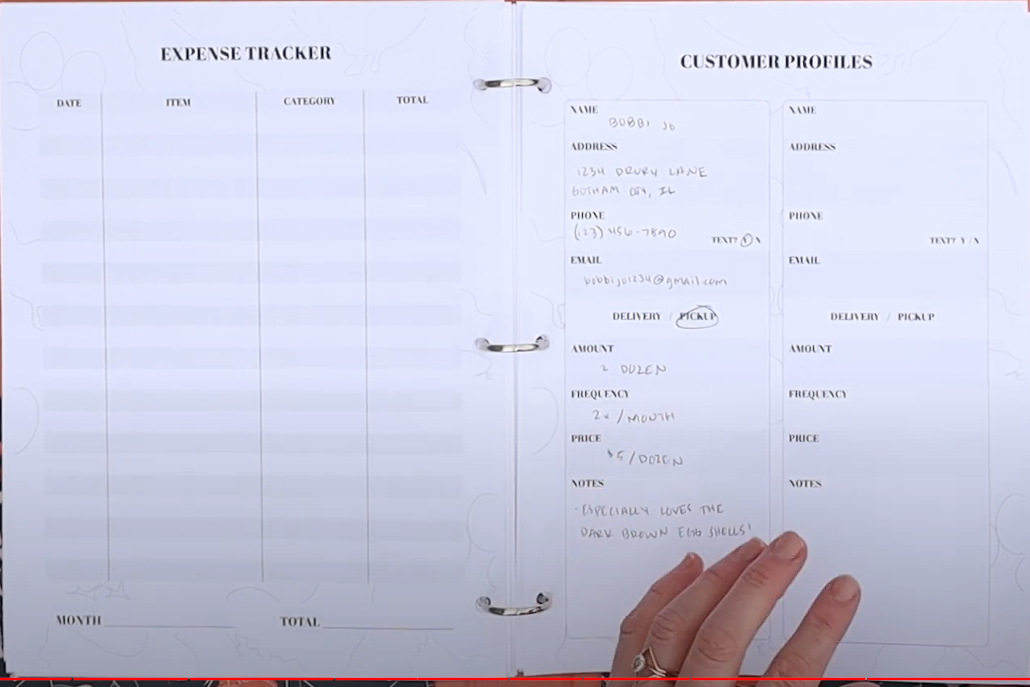 EXPENSE TRACKER
DATE ITEM CATEGORY TOTAL
MONTH
TOTAL
CUSTOMER PROFILES
NAME
BOBBI JO
ADDRESS
1234 DRURY LANE
GOTHAM CITY, IL
PHONE
(123) 456-7890
TEXT? Y / N
EMAIL
bobbijo1234@gmail.com
DELIVERY / PICKUP
AMOUNT
2 DOZEN
FREQUENCY
2x / MONTH
PRICE
$5 / DOZEN
NOTES
- ESPECIALLY LOVES THE
DARK BROWN EGG SHELLS!
NAME
ADDRESS
PHONE
TEXT? Y / N
EMAIL
DELIVERY / PICKUP
AMOUNT
FREQUENCY
PRICE
NOTES